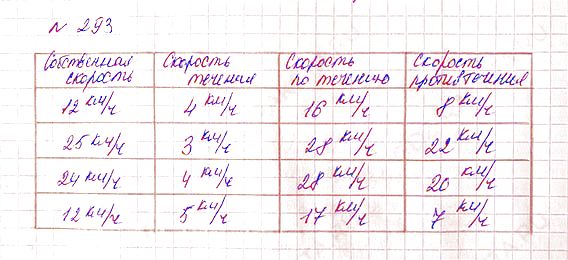 № 293
Собственная скорость Скорость течения Скорость по течению Скорость против течения
12 км/ч 4 км/ч 16 км/ч 8 км/ч
25 км/ч 3 км/ч 28 км/ч 22 км/ч
24 км/ч 4 км/ч 28 км/ч 20 км/ч
12 км/ч 5 км/ч 17 км/ч 7 км/ч